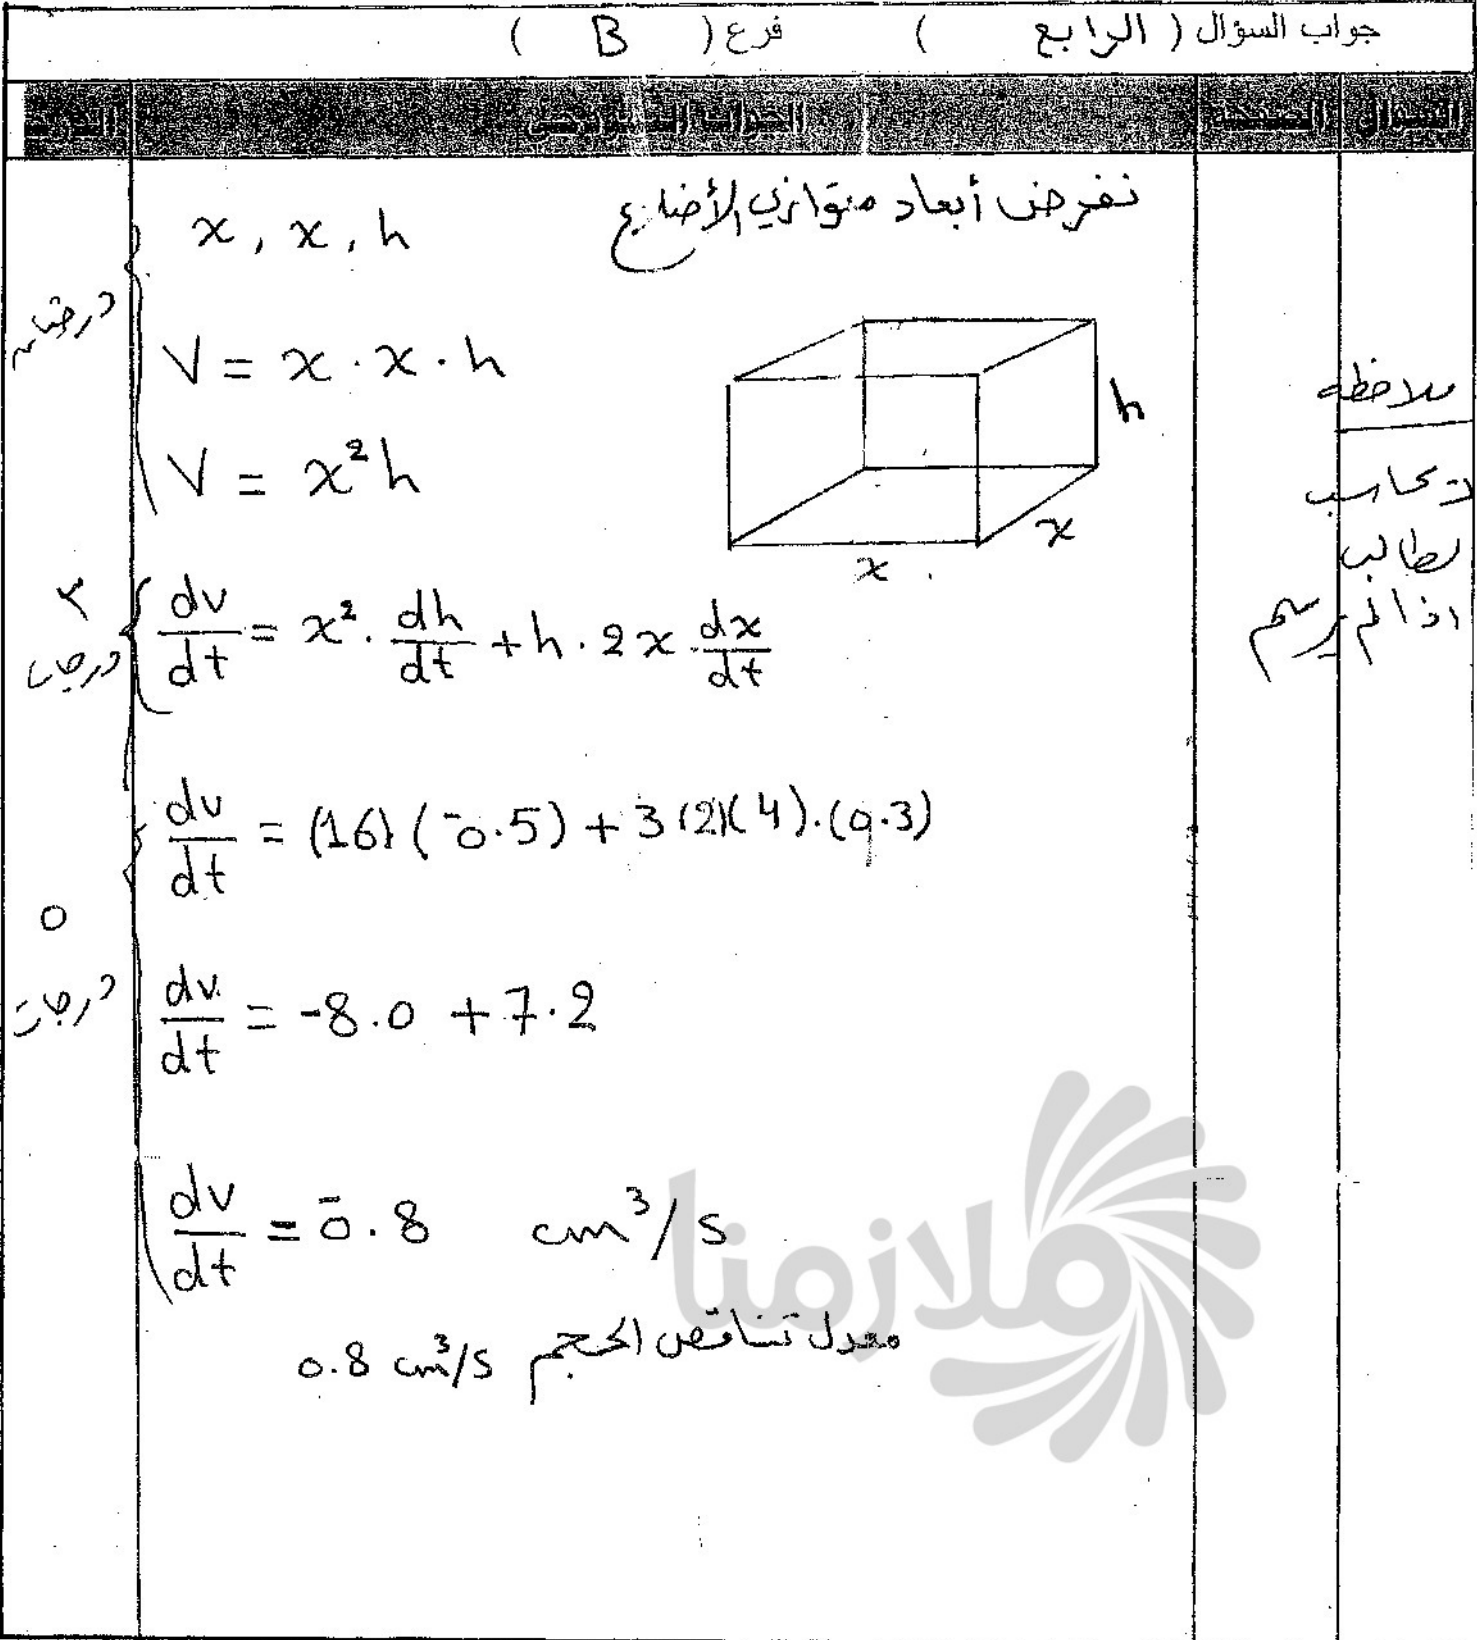 جواب السؤال ( الرابع ) فرع ( B )
السؤال الصفحة الجواب النموذجي الدرجة
نفرض أبعاد متوازي الأضلاع x , x , h
درجتان
V = x . x . h
h
V = x²h
x
x
ملاحظة
لا يحاسب
الطالب
اذا لم يرسم
٣ درجات
dv/dt = x² . dh/dt + h . 2x . dx/dt
dv/dt = (16) (⁻0.5) + 3 (2)(4) . (0.3)
٥
درجات
dv/dt = -8.0 + 7.2
dv/dt = ⁻0.8 cm³/s
معدل تناقص الحجم 0.8 cm³/s
ملازمنا